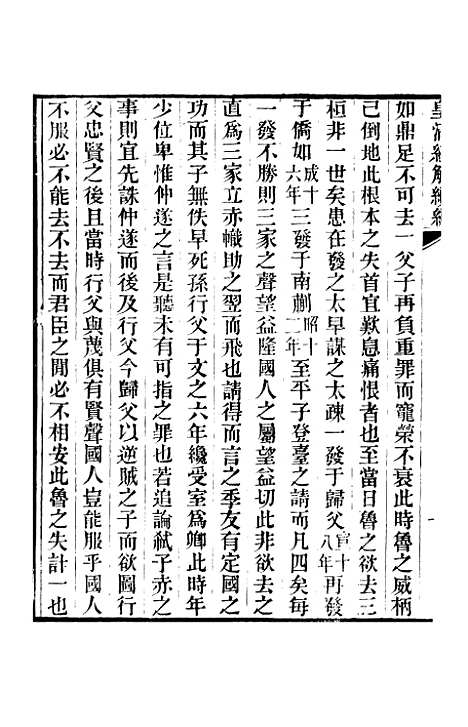 皇清經解續編
如鼎足不可去一父子再負重罪而寵榮不衰此時魯之威柄
已倒地此根本之失首宜歎息痛恨者也至當日魯之欲去三
桓非一世矣患在發之太早謀之太疎一發于歸父宣十八年再發
于僑如成十六年三發于南蒯昭十二年至平子登臺之請而凡四矣每
一發不勝則三家之聲望益隆國人之屬望益切此非欲去之
直爲三家立赤幟助之翌而飛也請得而言之季友有定國之
功而其子無佚早死孫行父于文之六年纔受室爲卿此時年
少位卑惟仲遂之言是聽未有可指之罪也若追論弑子赤之
事則宜先誅仲遂而後及行父今歸父以逆賊之子而欲圖行
父忠賢之後且當時行父與茂俱有賢聲國人豈能服乎國人
不服必不能去不去而君臣之閒必不相安此魯之失計一也